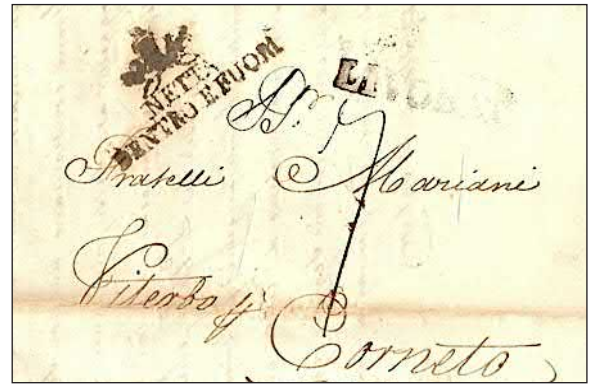 NETTA
DENTRO E FUORI
LIVORNO
Sr. 7
Fratelli Mariani
Viterbo p
Corneto